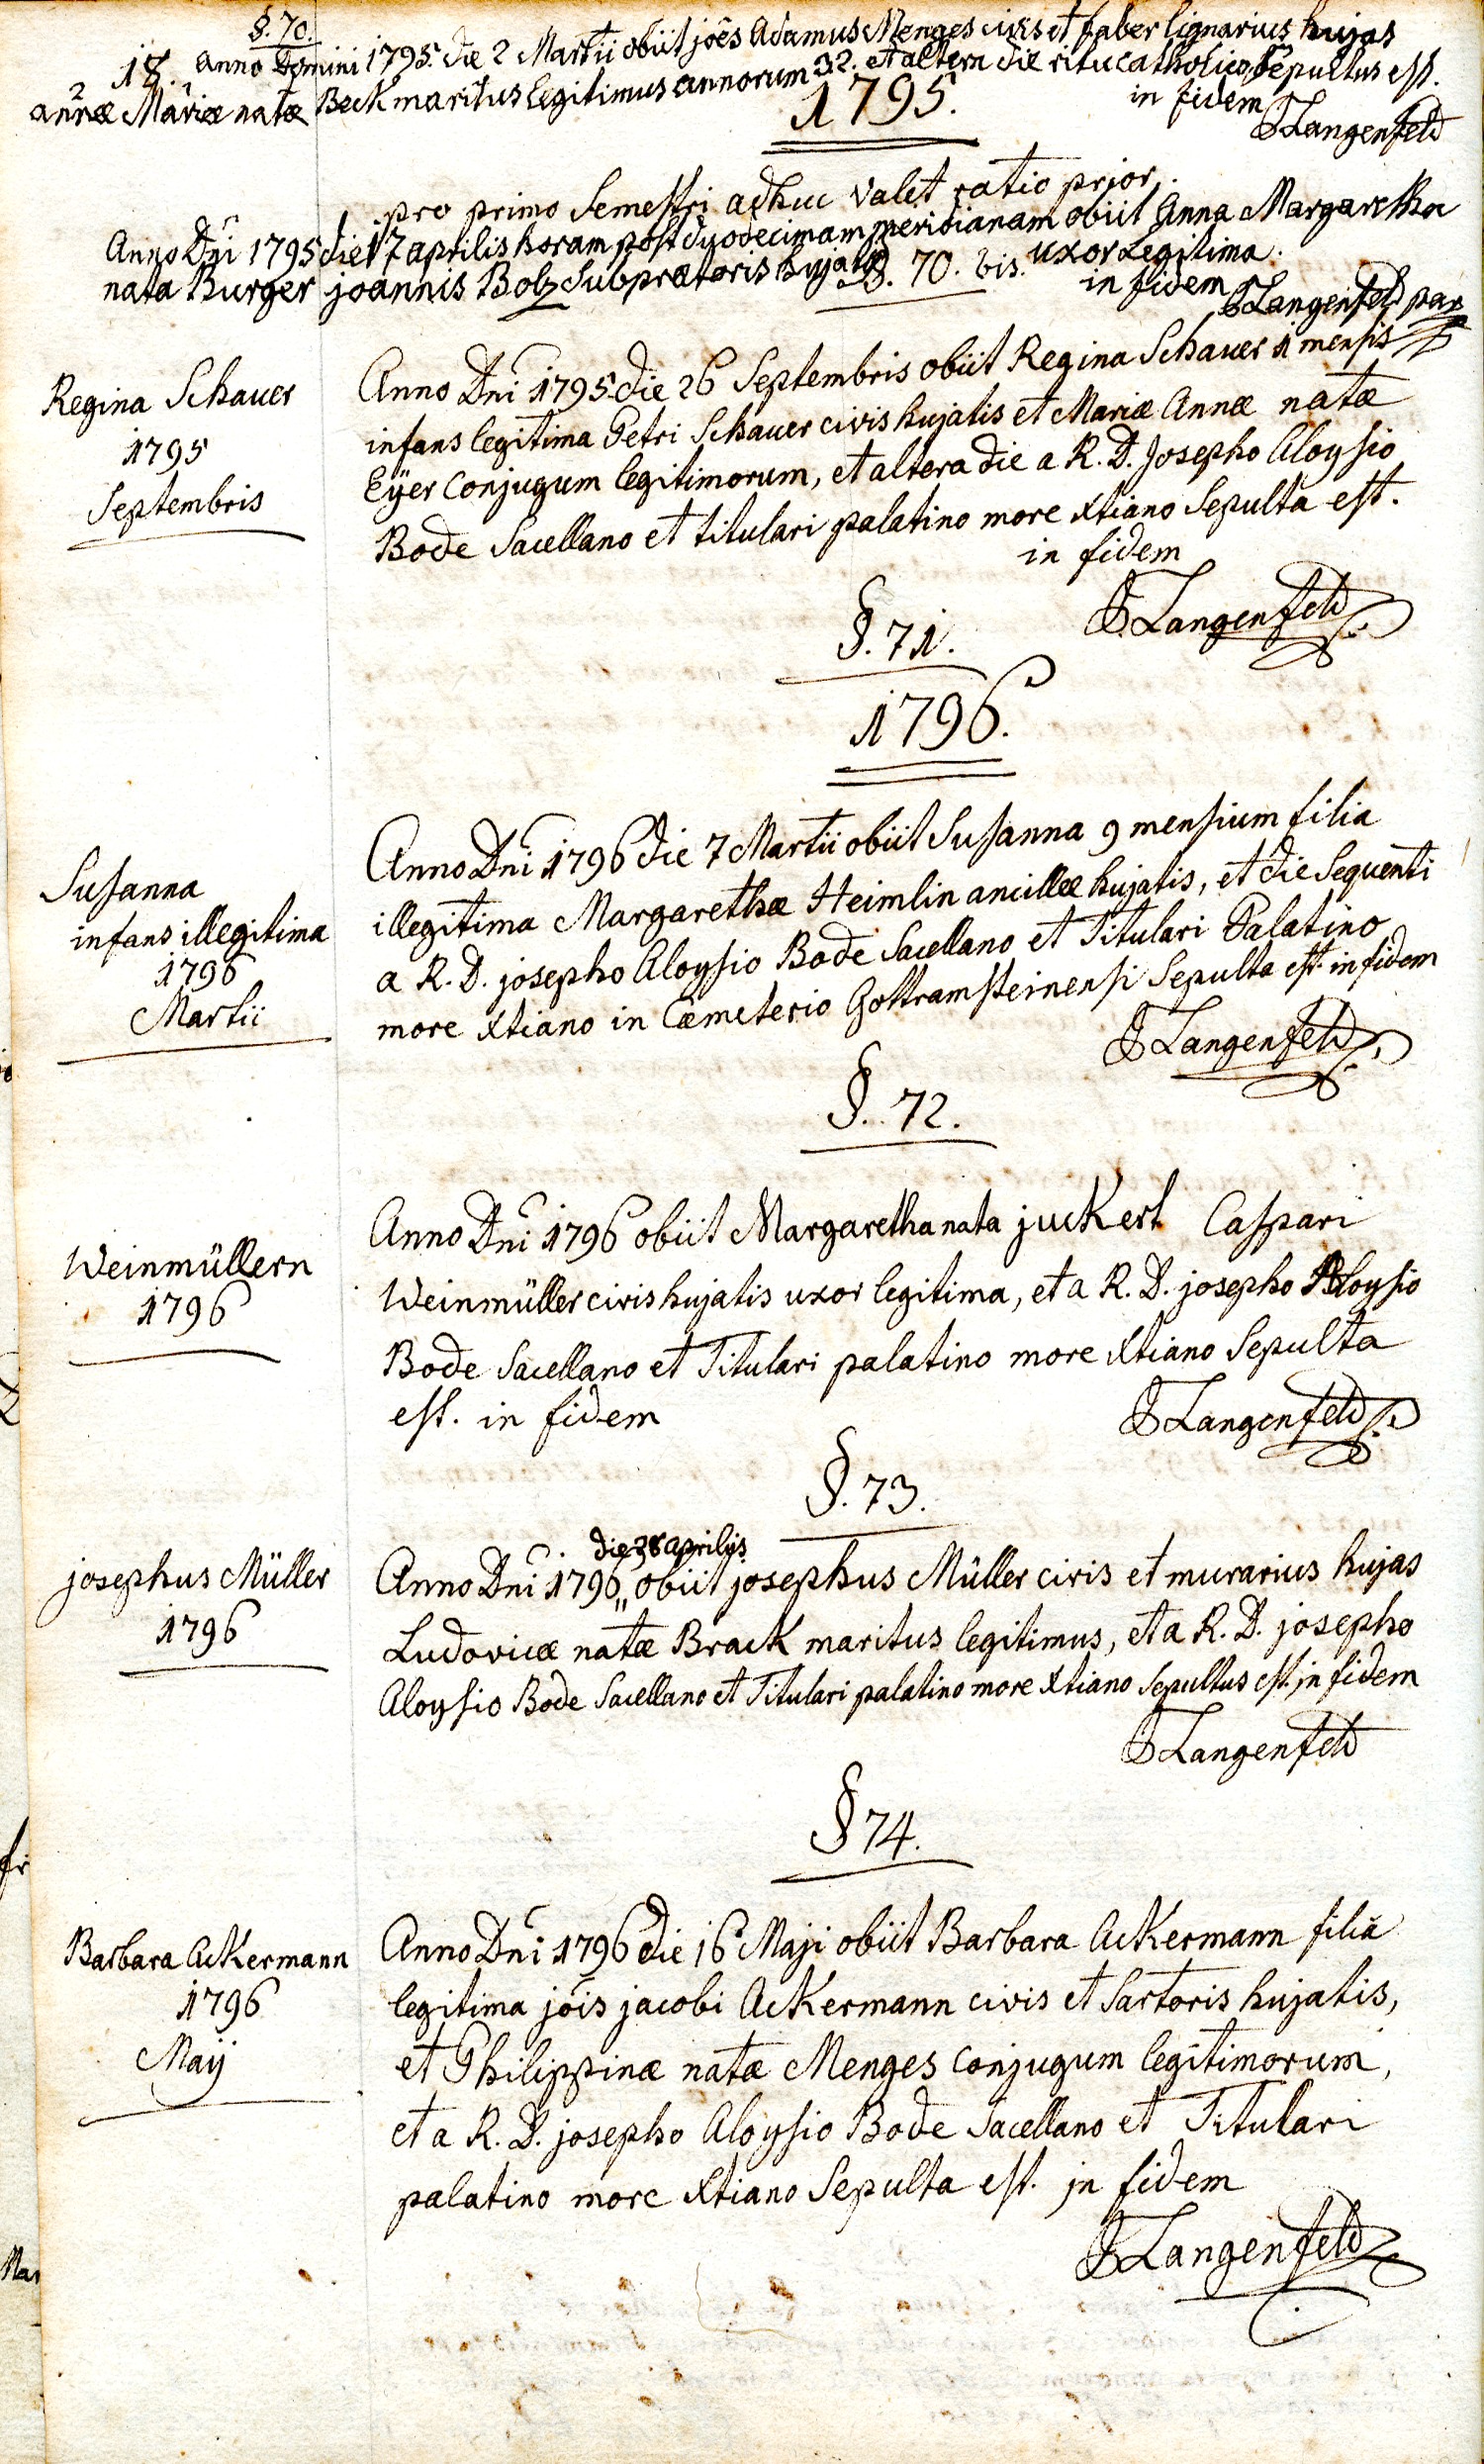 §. 70.
18. Anno Domini 1795. die 2 Martii obiit joês Adamus Menges civis et faber lignarius hujas
annæ Mariæ natæ Beck maritus legitimus annorum 32. et altera die ritu catholico sepultus est.
in fidem
1795.
Langenfeld
pro primo Semestri adhuc valet ratio prior.
Anno Dni 1795 die 17 aprilis horam post duodecimam meridianam obiit Anna Margaretha
nata Burger joannis Bolz Subprætoris hujatis uxor legitima.
§. 70. bis.
in fidem Langenfeld par
Regina Schauer
1795
Septembris
Anno Dni 1795 die 26 Septembris obiit Regina Schauer 1 mensis
infans legitima Petri Schauer civis hujatis et Mariæ Annæ natæ
Eÿer Conjugum legitimorum, et altera die a R. D. Josepho Aloysio
Bode Sacellano et titulari palatino more Xtiano Sepulta est.
in fidem
Langenfeld
§. 71.
1796.
Susanna
infans illegitima
1796
Martii
Anno Dni 1796 die 7 Martii obiit Susanna 9 mensium filia
illegitima Margarethæ Heimlin ancillæ hujatis, et die Sequenti
a R. D. josepho Aloysio Bode Sacellano et Titulari Palatino
more Xtiano in Cæmeterio Gottramsteinensi Sepulta est. in fidem
Langenfeld
§. 72.
Weinmüllern
1796
Anno Dni 1796 obiit Margaretha nata juckert Caspari
Weinmüller civis hujatis uxor legitima, et a R. D. josepho Aloysio
Bode Sacellano et Titulari palatino more Xtiano Sepulta
est. in fidem
Langenfeld
§. 73.
josephus Müller
1796
die 28 aprilis
Anno Dni 1796,, obiit josephus Müller civis et murarius hujas
Ludovicæ natæ Brack maritus legitimus, et a R. D. josepho
Aloysio Bode Sacellano et Titulari palatino more Xtiano Sepultus est. in fidem
Langenfeld
§ 74.
Barbara Ackermann
1796
Maÿ
Anno Dni 1796 die 16 Maji obiit Barbara Ackermann filia
legitima jôis jacobi Ackermann civis et Sartoris hujatis,
et Philippinæ natæ Menges Conjugum legitimorum,
et a R. D. josepho Aloysio Bode Sacellano et Titulari
palatino more Xtiano Sepulta est. in fidem
Langenfeld